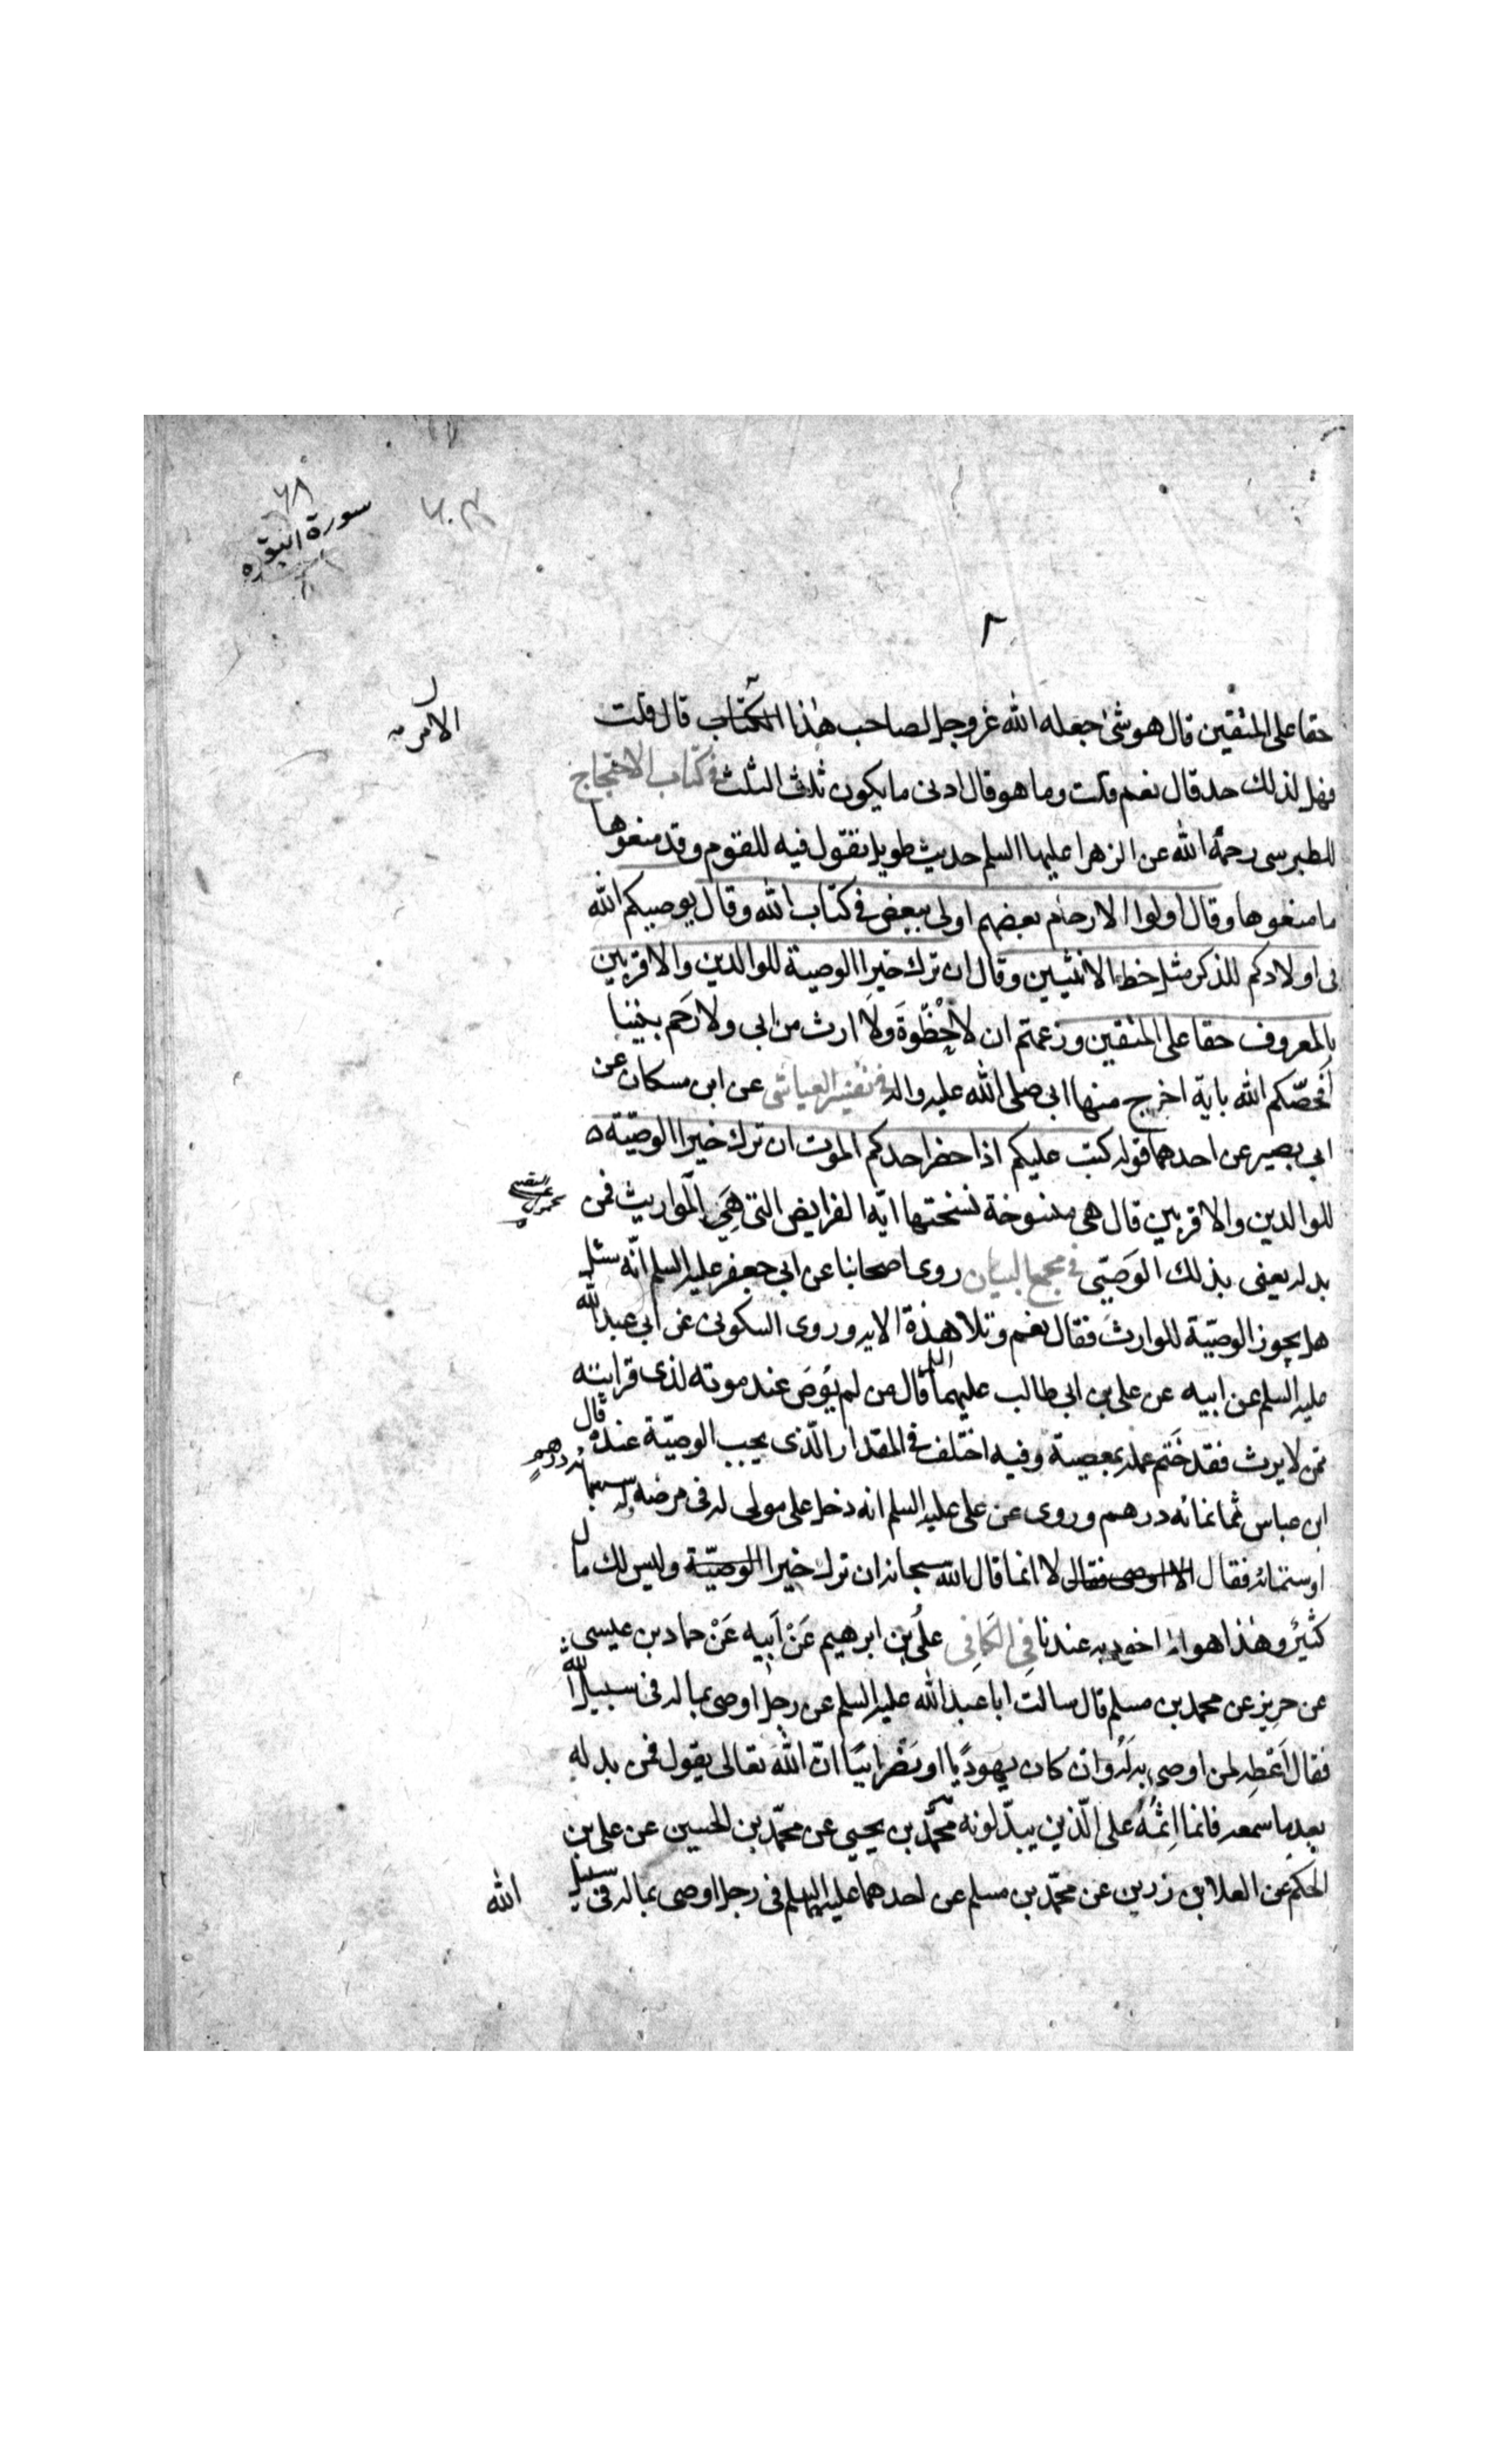 ٦٨
سورة البقره
حقا على المتقين قال هو شئ جعله الله عز وجل لصاحب هذا الكتاب قال قلت
الامر
فهل لذلك حد قال نعم قلت وما هو قال ادنى ما يكون ثلث الثلث في كتاب الاحتجاج
للطبرسى رحمة الله عن الزهرا عليها السلم حديث طويل تقول فيه للقوم وقد منعوها
ما منعوها وقال اولوا الارحام بعضهم اولى ببعض في كتاب الله وقال يوصيكم الله
فى اولادكم للذكر مثل حظ الانثيين وقال ان ترك خيرا الوصية للوالدين والاقربين
بالمعروف حقا على المتقين وزعمتم ان لا حظوة ولا ارث من ابى ولا رحم بيننا
أفخصكم الله باية اخرج منها ابى صلى الله عليه واله في تفسير العياشى عن ابن مسكان عن
ابى بصير عن احدهما قوله كتب عليكم اذا حضر احدكم الموت ان ترك خيرا الوصيّة
للوالدين والاقربين قال هى منسوخة نسختها ايّة الفرايض التى هي المواريث فمن
بدله يعنى بذلك الوصىّ في مجمع البيان روى اصحابنا عن ابى جعفر عليه السلم انّه سئل
هل يجوز الوصيّة للوارث فقال نعم وتلا هذة الايه وروى السكونى عن ابى عبد الله
عليه السلم عن ابيه عن على بن ابى طالب عليهما السلم قال من لم يوص عند موته لذى قرابته
ممن لا يرث فقد ختم عمله بمعصية وفيه اختلف في المقدار الّذى يجب الوصيّة عنده قال
ابن عباس ثمانمائه درهم وروى عن على عليه السلم انه دخل على مولى له فى مرضه وله سبعمائه درهم
او ستمائه فقال الا اوصى فقال لا انما قال الله سبحانه ان ترك خيرا الوصيّة وليس لك مال
كثير وهذا هو الماخوذ به عندنا في الكافى على بن ابرهيم عن أبيه عن حماد بن عيسى
عن حريز عن محمد بن مسلم قال سالت ابا عبد الله عليه السلم عن رجل اوصى بماله فى سبيل الله
فقال اعطه لمن اوصى به له وان كان يهوديّا او نصرانيّا انّ الله تعالى يقول فمن بدله
بعد ما سمعه فانما اثمه على الّذين يبدّلونه محمّد بن يحيى عن محمّد بن الحسين عن على بن
الحكم عن العلا بن زرين عن محمّد بن مسلم عن احدهما عليهما السلم فى رجل اوصى بماله فى سبيل
الله